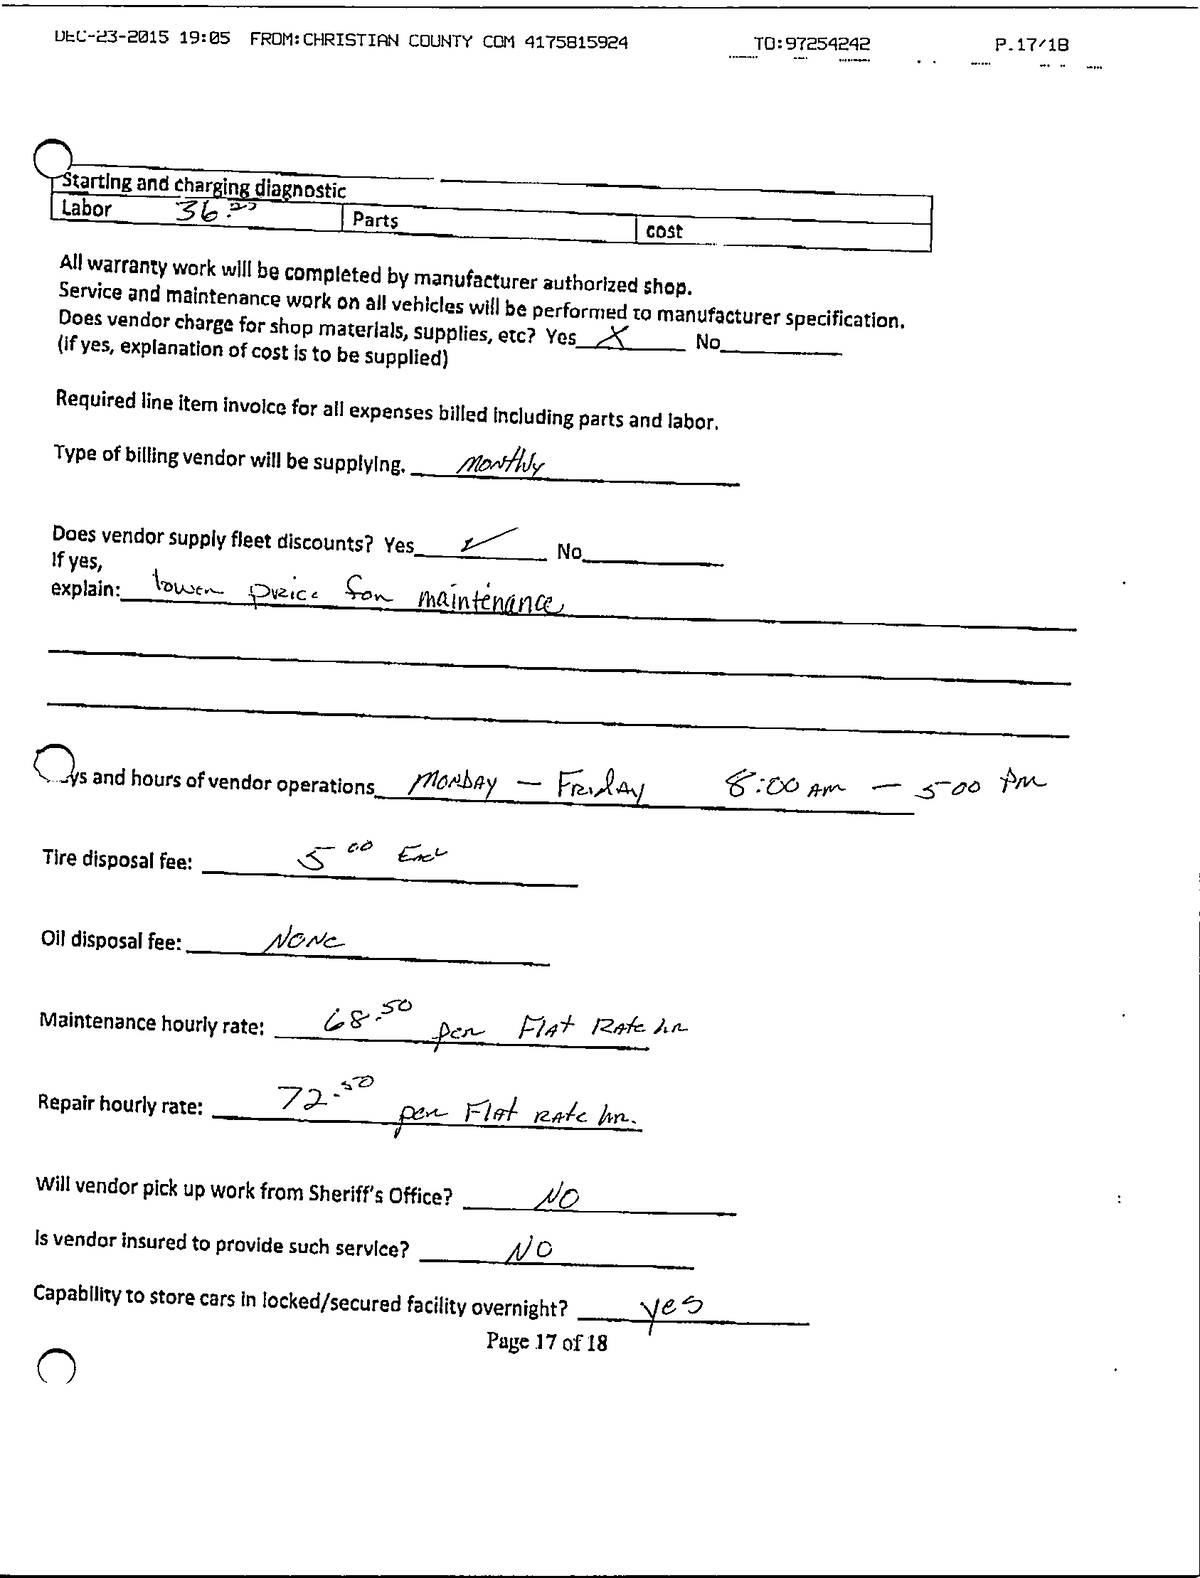 DEC-23-2015 19:05 FROM:CHRISTIAN COUNTY COM 4175815924 TO:97254242 P.17/18
Starting and charging diagnostic
Labor 36. Parts cost
All warranty work will be completed by manufacturer authorized shop.
Service and maintenance work on all vehicles will be performed to manufacturer specification.
Does vendor charge for shop materials, supplies, etc? Yes X No
(if yes, explanation of cost is to be supplied)
Required line item invoice for all expenses billed including parts and labor.
Type of billing vendor will be supplying. monthly
Does vendor supply fleet discounts? Yes ✓ No
If yes,
explain: lower price for maintenance
ys and hours of vendor operations MONDAY - FRIDAY 8:00 AM - 5 00 PM
Tire disposal fee: 5 00
Oil disposal fee: NONE
Maintenance hourly rate: 68.50 per Flat Rate hr
Repair hourly rate: 72.50 per Flat Rate hr.
Will vendor pick up work from Sheriff's Office? NO
Is vendor insured to provide such service? NO
Capability to store cars in locked/secured facility overnight? yes
Page 17 of 18